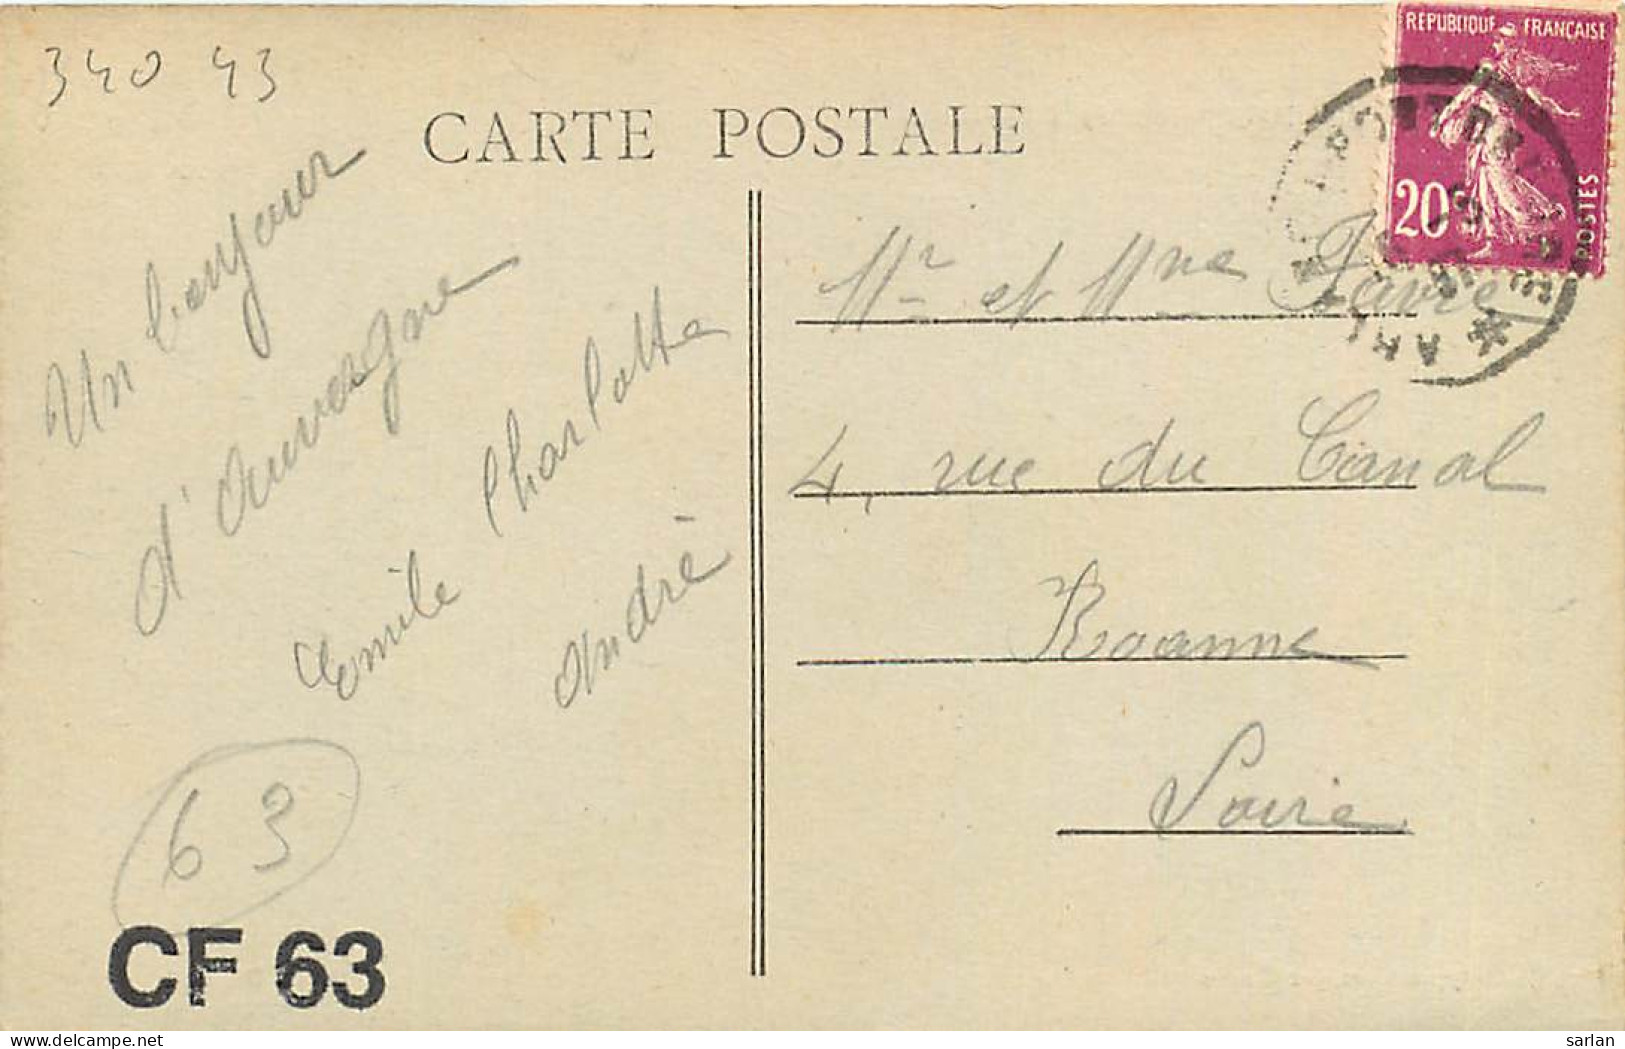 340 43
CARTE POSTALE
REPUBLIQUE FRANÇAISE
20c
POSTES
Un bonjour
d'Auvergne
Emile Charlotte
André
Mr et Mme Favre
4, rue du Canal
Roanne
Loire
63
CF 63
sarlan